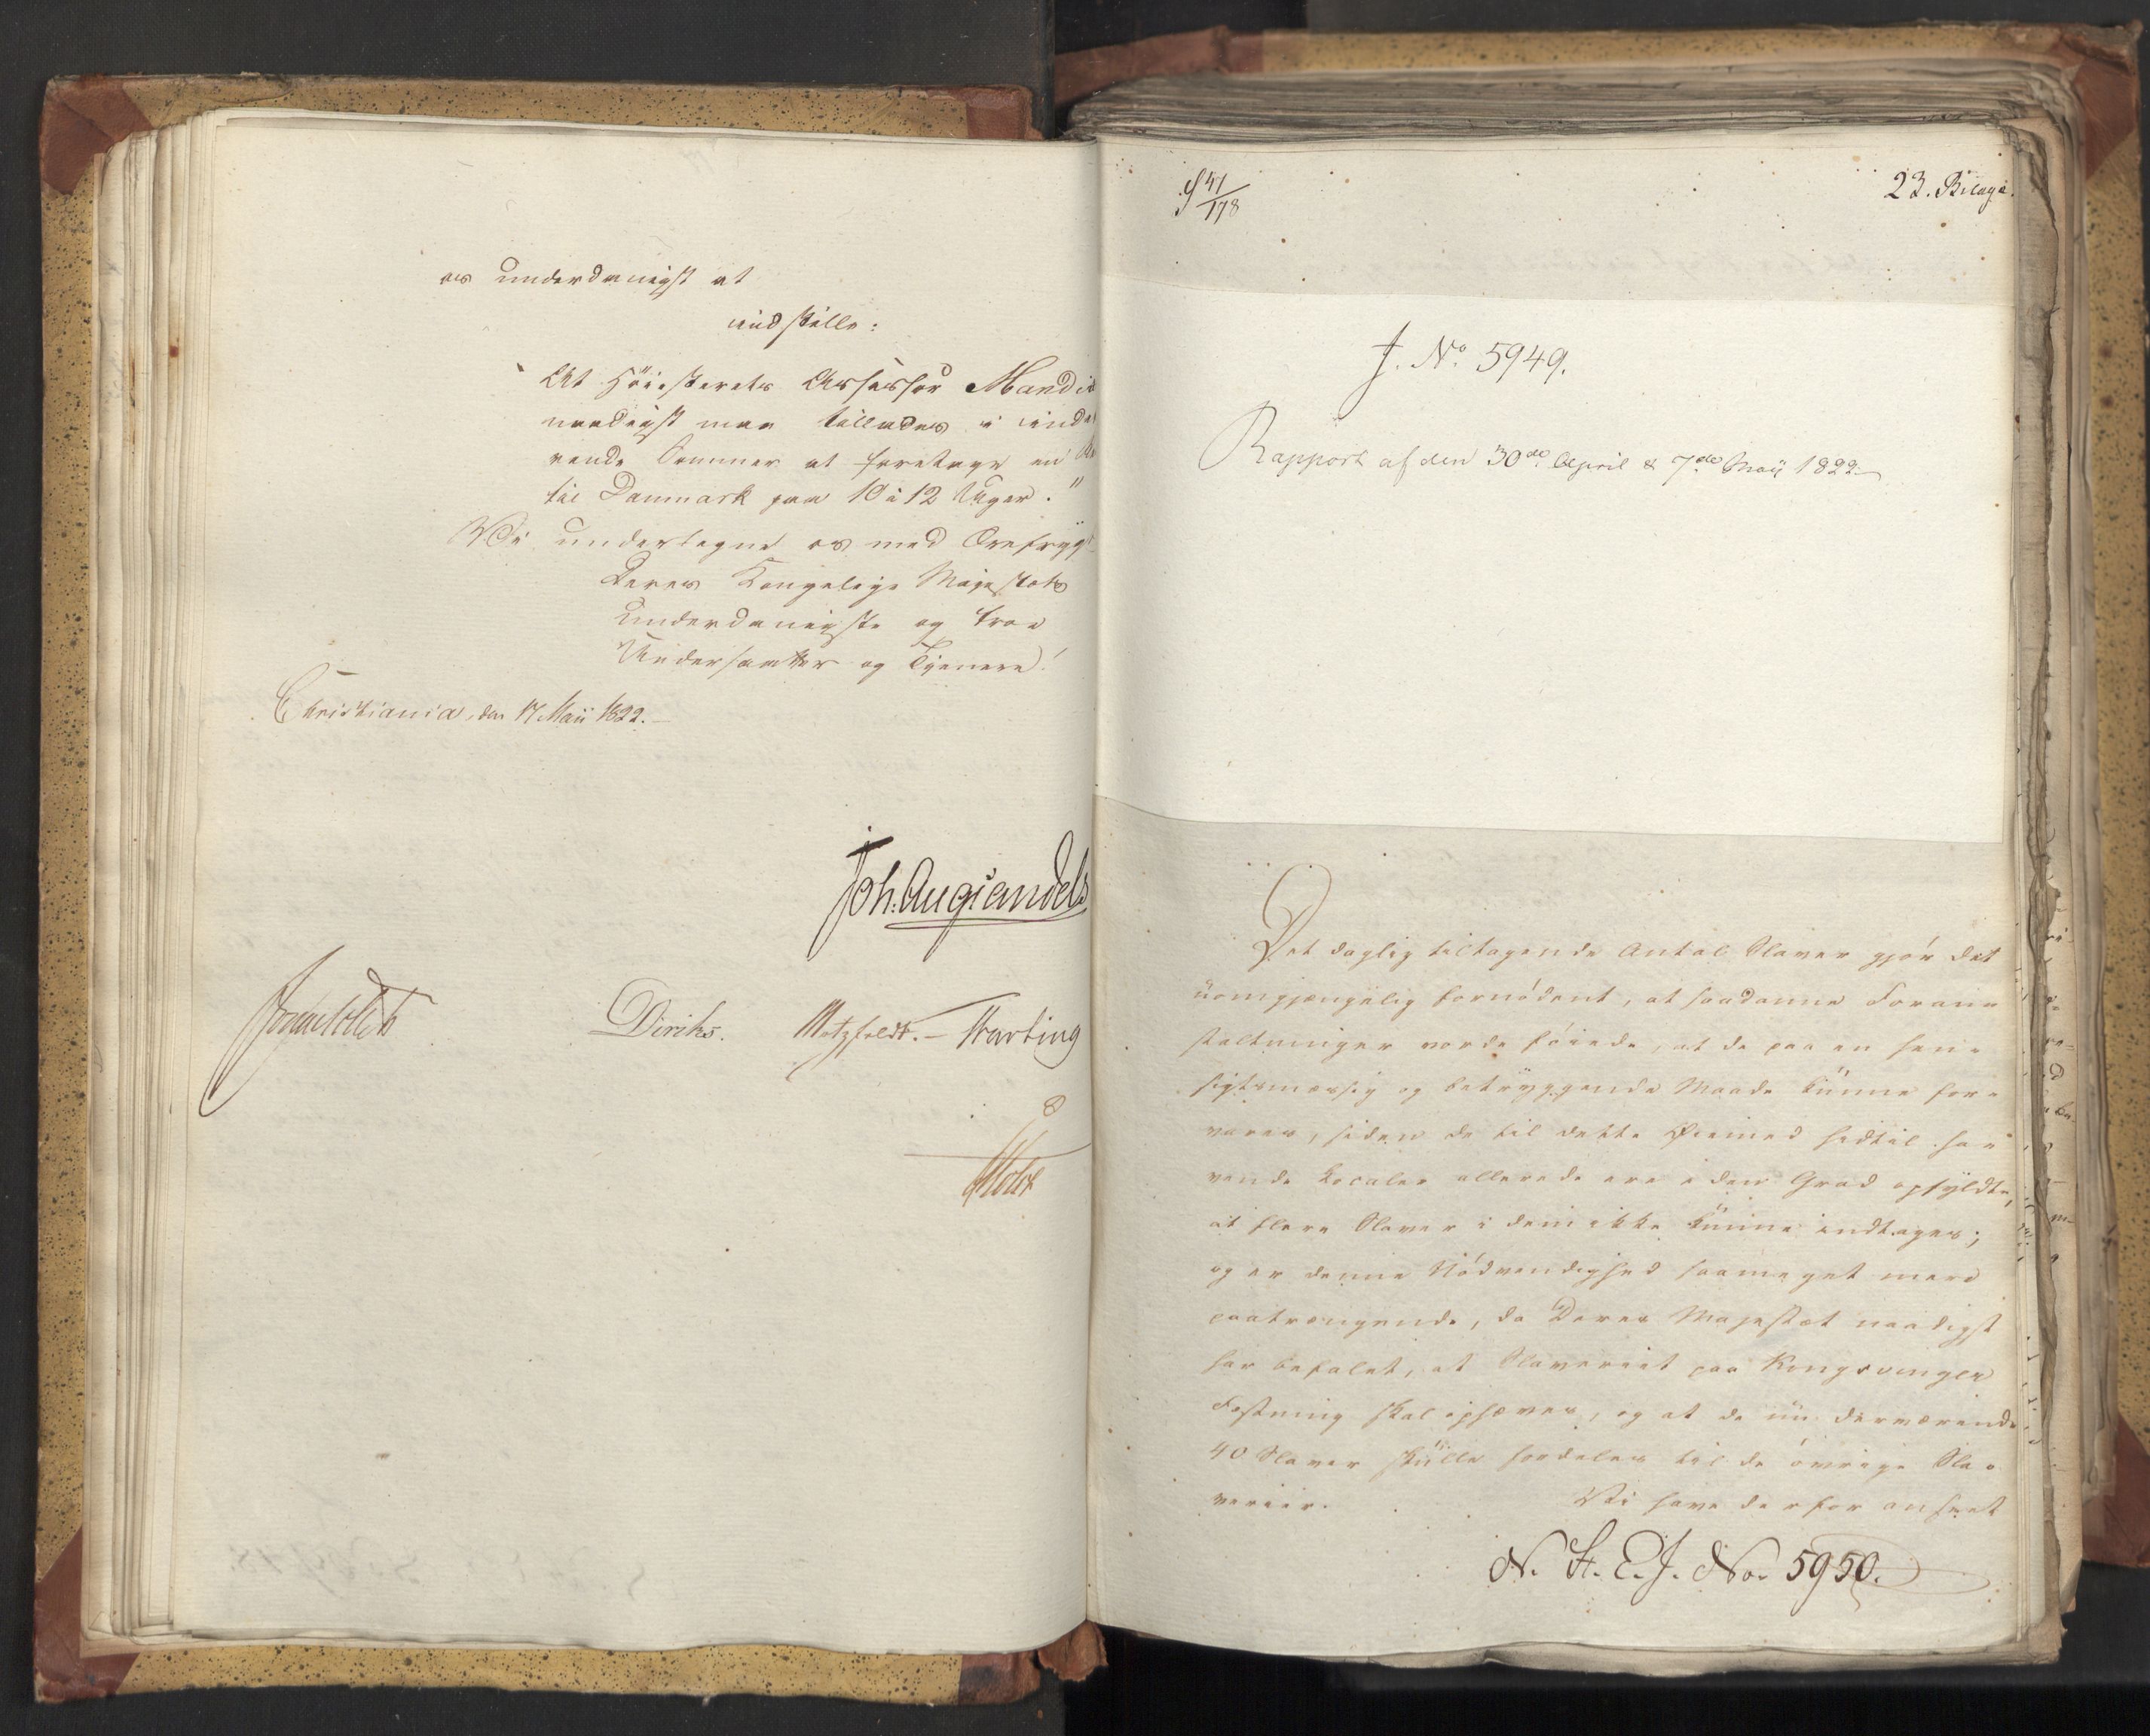 os underdanigst at
indstille:
"At Höiesterets Assessor Mandix
naadigst maa tillades i inde-
rende Sommer at foretage en
til Danmark paa 10 à 12 Uger."
Vi undertegne os med Ærefrygt
Deres Kongelige Majestæts
underdanigste og troe
Undersaatter og Tjenere!
Christiania, den 17 Maii 1822.
Joh: Aug: Sandels
Sommerhielm Diriks. Motzfeldt. Krarting
Holst
S 41/178
23. Bilage.
J. No 5949.
Rapport af den 30de April & 7de Maii 1822.
Det daglig tiltagende Antal Slaver gjör det
uomgjængelig fornödent, at saadanne Foran-
staltninger vorde föiede, at de paa en hen-
sigtsmæssig og betryggende Maade kunne for-
vares, siden de til dette Öiemed hidtil ha-
vende Localer allerede ere i den Grad opfyldte,
at flere Slaver i dem ikke kunne indtages;
og er denne Nödvendighed saameget mere
paatrængende, da Deres Majestæt naadigst
har befalet, at Slaveriet paa Kongsvinger
Festning skal ophæves, og at de nu derværende
40 Slaver skulle fordeles til de övrige Sla-
verier. Vi have derfor anseet
N. St. E. J. No. 5950.